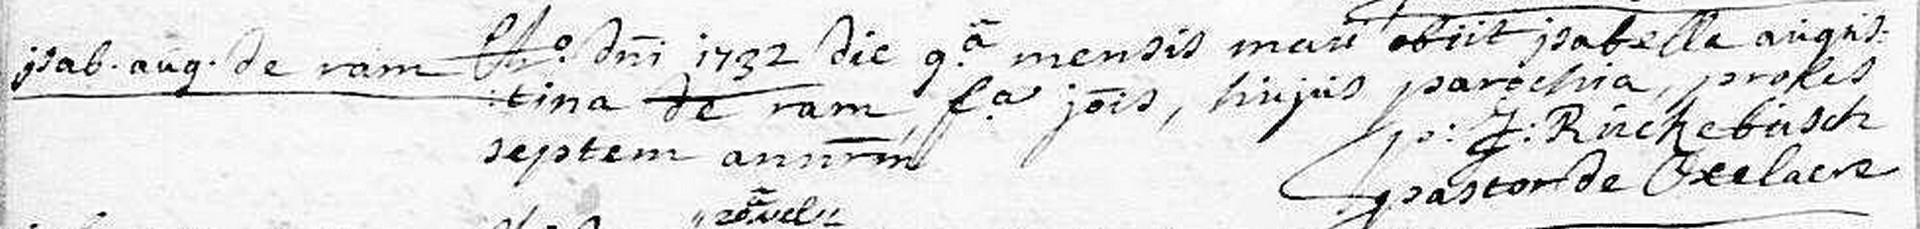 jsab. aug. de ram
Ao. dni 1732 die 9.a mensis maii obiit jsabella augus:
:tina de ram, f.a jois, hujus parochia, proles
septem annrm
p: J: Ruckebusch
pastor de Oxelaere